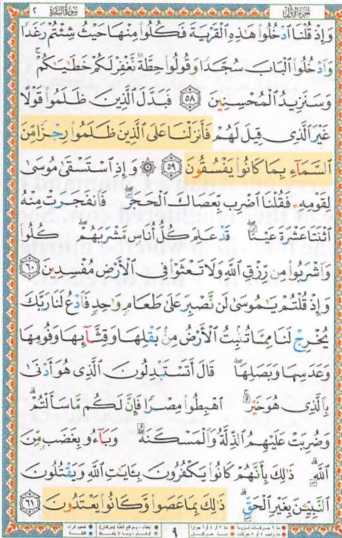 وَإِذْ قُلْنَا ادْخُلُوا هَٰذِهِ الْقَرْيَةَ فَكُلُوا مِنْهَا حَيْثُ شِئْتُمْ رَغَدًا
وَادْخُلُوا الْبَابَ سُجَّدًا وَقُولُوا حِطَّةٌ نَّغْفِرْ لَكُمْ خَطَايَاكُمْ
وَسَنَزِيدُ الْمُحْسِنِينَ ٥٨ فَبَدَّلَ الَّذِينَ ظَلَمُوا قَوْلًا
غَيْرَ الَّذِي قِيلَ لَهُمْ فَأَنزَلْنَا عَلَى الَّذِينَ ظَلَمُوا رِجْزًا مِّنَ
السَّمَاءِ بِمَا كَانُوا يَفْسُقُونَ ٥٩ ۞ وَإِذِ اسْتَسْقَىٰ مُوسَىٰ
لِقَوْمِهِ فَقُلْنَا اضْرِب بِّعَصَاكَ الْحَجَرَ فَانفَجَرَتْ مِنْهُ
اثْنَتَا عَشْرَةَ عَيْنًا قَدْ عَلِمَ كُلُّ أُنَاسٍ مَّشْرَبَهُمْ كُلُوا
وَاشْرَبُوا مِن رِّزْقِ اللَّهِ وَلَا تَعْثَوْا فِي الْأَرْضِ مُفْسِدِينَ ٦٠
وَإِذْ قُلْتُمْ يَا مُوسَىٰ لَن نَّصْبِرَ عَلَىٰ طَعَامٍ وَاحِدٍ فَادْعُ لَنَا رَبَّكَ
يُخْرِجْ لَنَا مِمَّا تُنبِتُ الْأَرْضُ مِن بَقْلِهَا وَقِثَّائِهَا وَفُومِهَا
وَعَدَسِهَا وَبَصَلِهَا قَالَ أَتَسْتَبْدِلُونَ الَّذِي هُوَ أَدْنَىٰ
بِالَّذِي هُوَ خَيْرٌ اهْبِطُوا مِصْرًا فَإِنَّ لَكُم مَّا سَأَلْتُمْ
وَضُرِبَتْ عَلَيْهِمُ الذِّلَّةُ وَالْمَسْكَنَةُ وَبَاءُو بِغَضَبٍ مِّنَ
اللَّهِ ذَٰلِكَ بِأَنَّهُمْ كَانُوا يَكْفُرُونَ بِآيَاتِ اللَّهِ وَيَقْتُلُونَ
النَّبِيِّينَ بِغَيْرِ الْحَقِّ ذَٰلِكَ بِمَا عَصَوا وَّكَانُوا يَعْتَدُونَ ٦١
٩